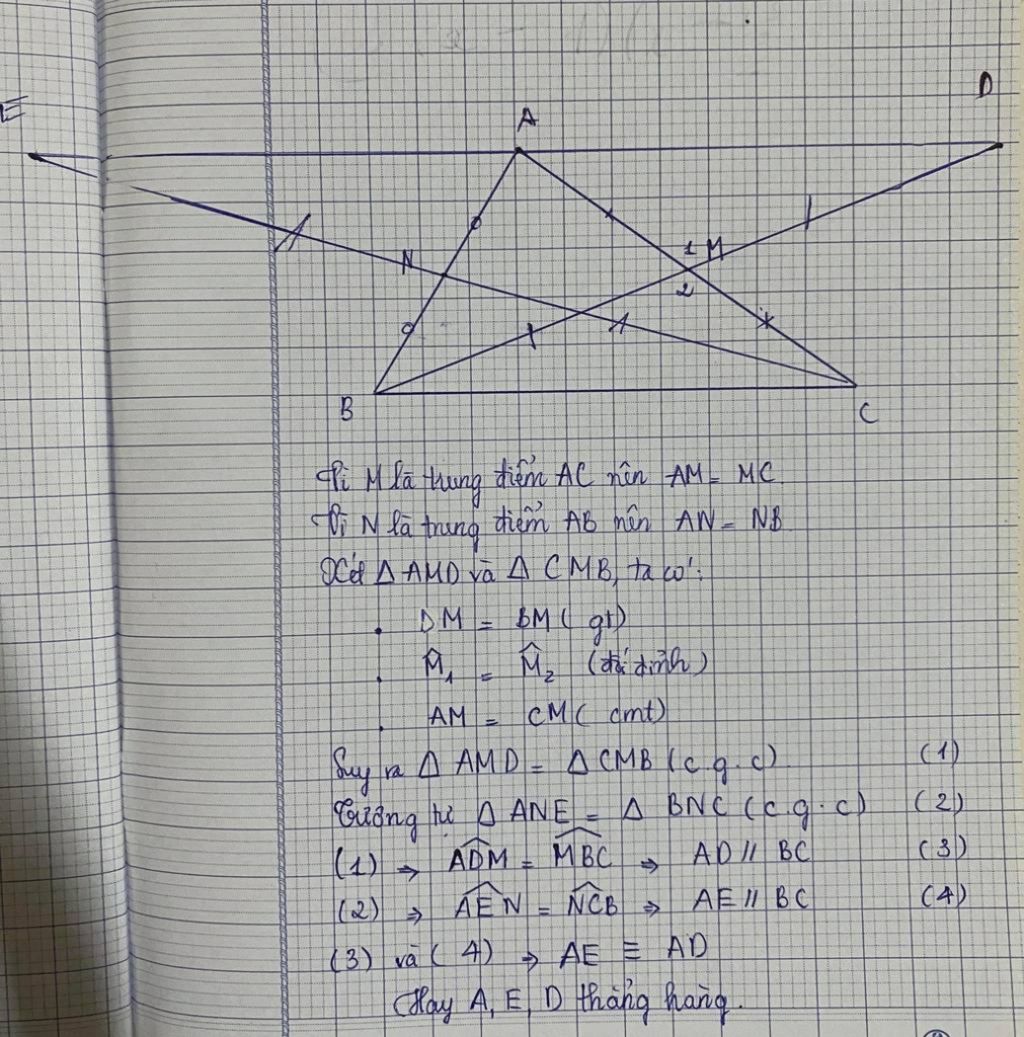 E
D
A
N
1 M
2
B
C
Vì M là trung điểm AC nên AM = MC
Vì N là trung điểm AB nên AN = NB
Xét Δ AMD và Δ CMB, ta có:
. DM = BM ( gt)
. M̂₁ = M̂₂ (đối đỉnh)
. AM = CM ( cmt)
Suy ra Δ AMD = Δ CMB (c.g.c) (1)
Tương tự Δ ANE = Δ BNC (c.g.c) (2)
(1) ⇒ \widehat{ADM} = \widehat{MBC} ⇒ AD // BC (3)
(2) ⇒ \widehat{AEN} = \widehat{NCB} ⇒ AE // BC (4)
(3) và (4) ⇒ AE ≡ AD
Hay A, E, D thẳng hàng.